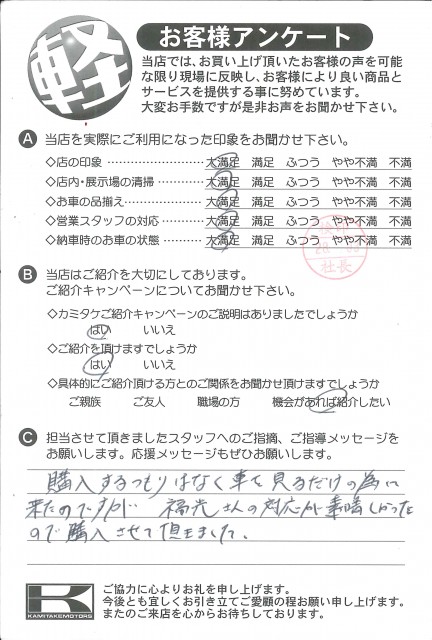 軽
お客様アンケート
当店では、お買い上げ頂いたお客様の声を可能
な限り現場に反映し、お客様により良い商品と
サービスを提供する事に努めています。
大変お手数ですが是非お声をお聞かせ下さい。
A 当店を実際にご利用になった印象をお聞かせ下さい。
◇店の印象 ………………… 大満足 満足 ふつう やや不満 不満
◇店内・展示場の清掃 ………… 大満足 満足 ふつう やや不満 不満
◇お車の品揃え ……………… 大満足 満足 ふつう やや不満 不満
◇営業スタッフの対応 ………… 大満足 満足 ふつう やや不満 不満
◇納車時のお車の状態 ………… 大満足 満足 ふつう やや不満 不満
社長
B 当店はご紹介を大切にしております。
ご紹介キャンペーンについてお聞かせ下さい。
◇カミタケご紹介キャンペーンのご説明はありましたでしょうか
はい いいえ
◇ご紹介を頂けますでしょうか
はい いいえ
◇具体的にご紹介頂ける方とのご関係をお聞かせ頂けますでしょうか
ご親族 ご友人 職場の方 機会があれば紹介したい
C 担当させて頂きましたスタッフへのご指摘、ご指導メッセージを
お願いします。応援メッセージもぜひお願いします。
購入するつもりはなく車を見るだけの為に
来たのですが 福光さんの対応が素晴しかった
ので購入させて頂きました。
K
KAMITAKEMOTORS
ご協力に心よりお礼を申し上げます。
今後とも宜しくお引き立てご愛顧の程お願い申し上げます。
またのご来店を心からお待ちしております。